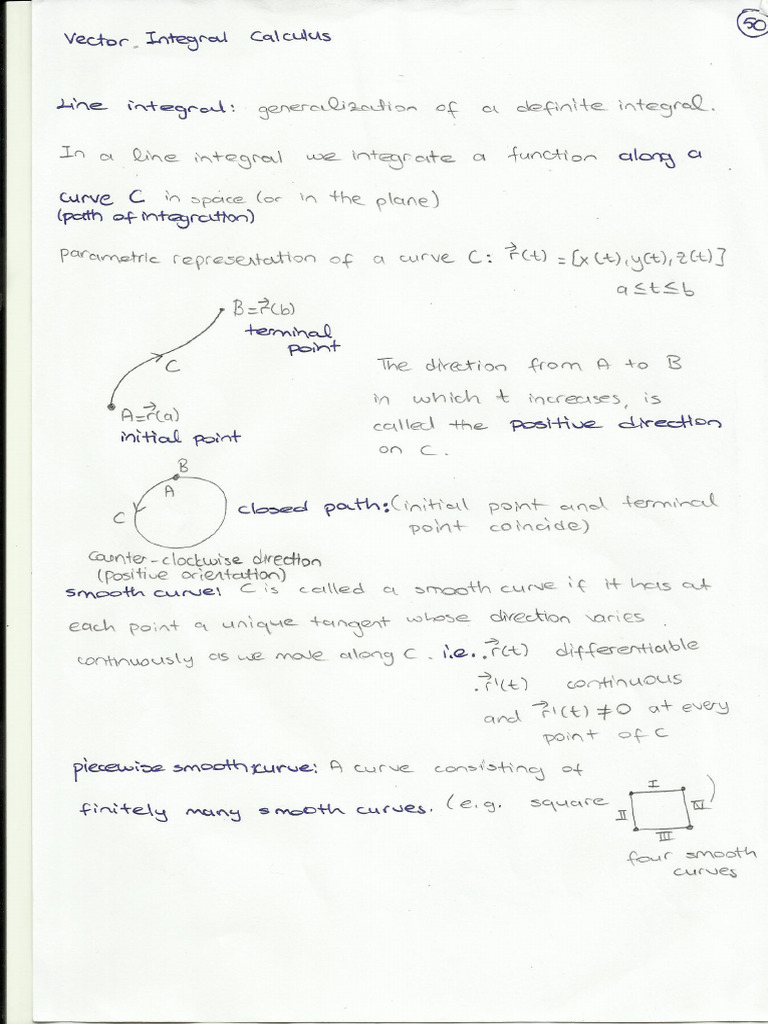 50
Vector Integral Calculus
Line integral: generalization of a definite integral.
In a line integral we integrate a function along a
curve C in space (or in the plane)
(path of integration)
parametric representation of a curve C: r⃗(t) = [x(t), y(t), z(t)]
a ≤ t ≤ b
B = r⃗(b)
terminal
point
C
A = r⃗(a)
initial point
The direction from A to B
in which t increases, is
called the positive direction
on C.
B
A
C
closed path: (initial point and terminal
point coincide)
counter-clockwise direction
(positive orientation)
smooth curve: C is called a smooth curve if it has at
each point a unique tangent whose direction varies
continuously as we move along C. i.e. . r⃗(t) differentiable
. r⃗'(t) continuous
and r⃗'(t) ≠ 0 at every
point of C
piecewise smooth curve: A curve consisting of
finitely many smooth curves. (e.g. square )
I
II
III
IV
four smooth
curves